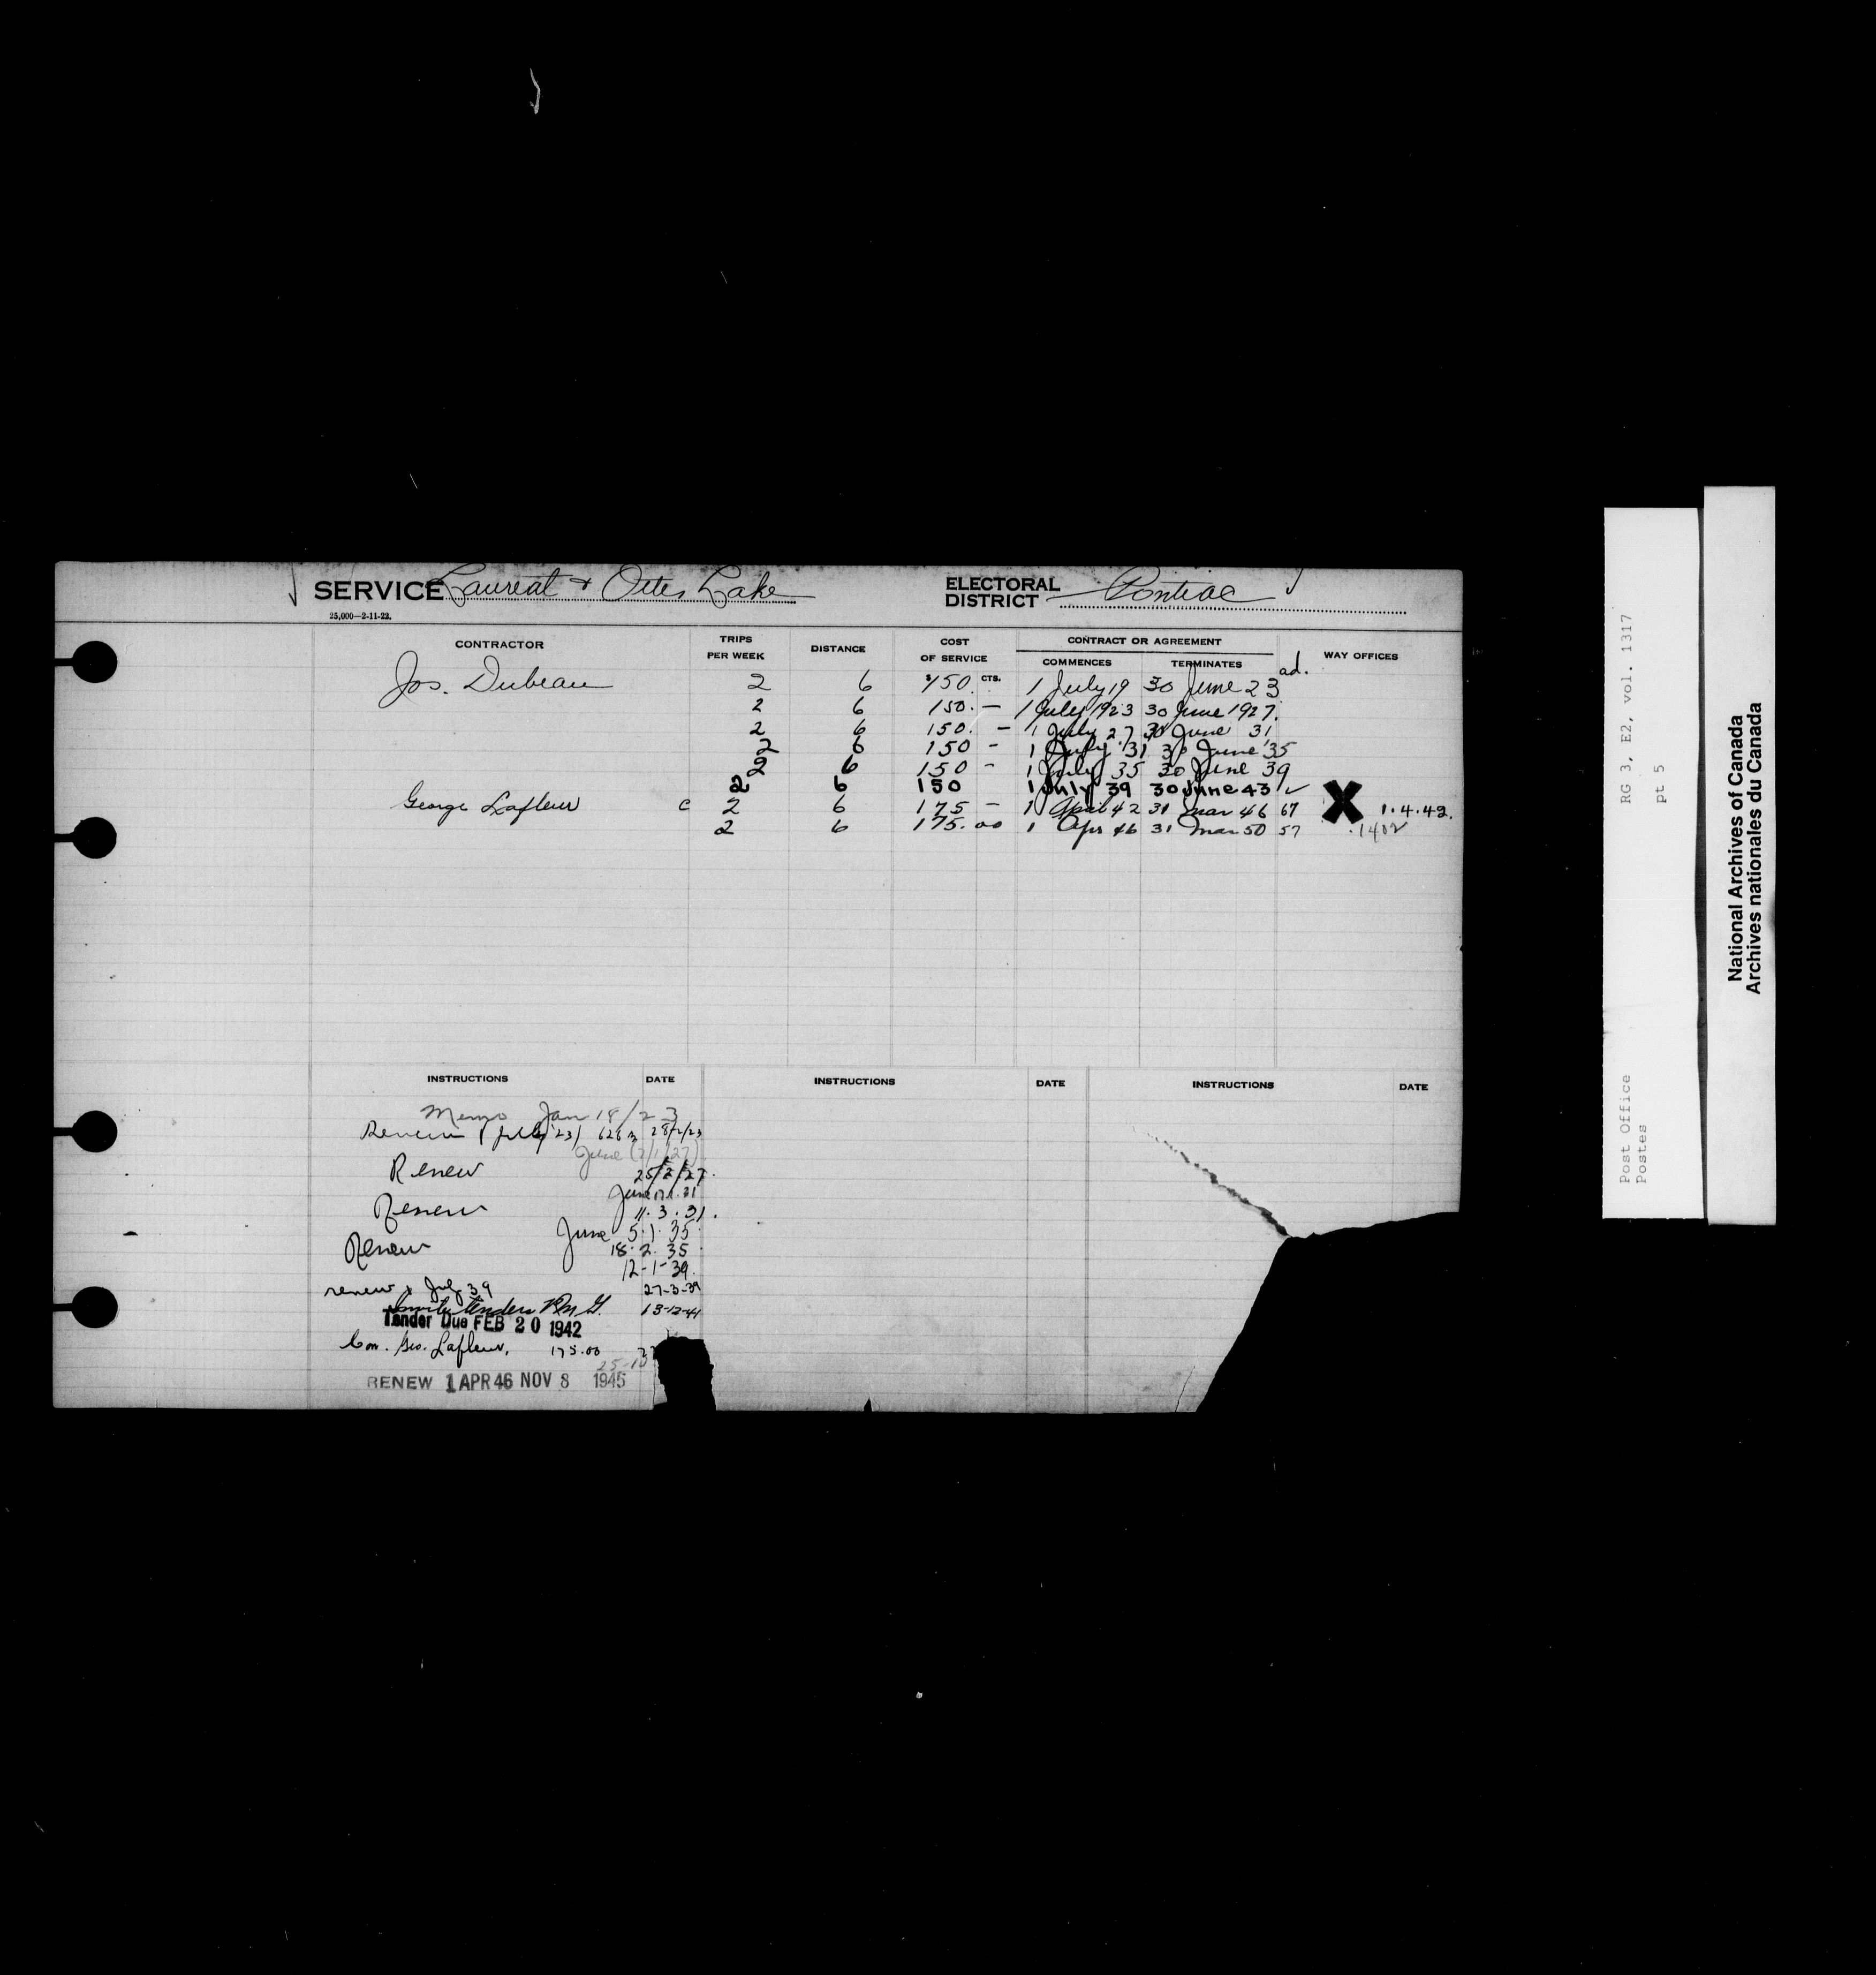 SERVICE Laureat + Otter Lake ELECTORAL DISTRICT Pontiac
25,000—2-11-22.
CONTRACTOR TRIPS PER WEEK DISTANCE COST OF SERVICE CONTRACT OR AGREEMENT COMMENCES TERMINATES WAY OFFICES
ad.
Jos. Dubeau 2 6 $150. CTS. 1 July 19 30 June 23
2 6 150. — 1 July 1923 30 June 1927.
2 6 150. — 1 July 27 30 June 31
2 6 150 - 1 July '31 30 June '35
2 6 150 - 1 July 35 30 June 39
2 6 150 1 July 39 30 June 43 ✓
George Lafleur c 2 6 175 — 1 April 42 31 mar 46 67 X 1.4.42.
2 6 175.00 1 Apr 46 31 Mar 50 57 1402
INSTRUCTIONS DATE INSTRUCTIONS DATE INSTRUCTIONS DATE
Memo Jan 18/23
Renew 1 July '23 626 m 28/2/23
June (7/1/27)
Renew 25/2/27.
June 17.1.31
Renew 11.3.31.
June 5.1.35
Renew 18.2.35
12-1-39.
renew 1 July 39 27-3-39
Invite tenders 13-12-41
Tender Due FEB 20 1942
Con. Geo. Lafleur. 175.00
25-10
RENEW 1 APR 46 NOV 8 1945
RG 3, E2, vol. 1317
pt 5
Post Office
Postes
National Archives of Canada
Archives nationales du Canada